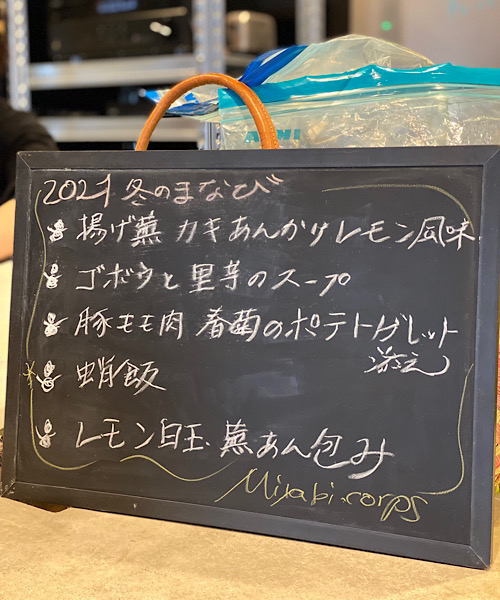 2021 冬のまなび
揚げ蕪 カキあんかけレモン風味
ゴボウと里芋のスープ
豚モモ肉 春菊のポテトガレット
添え
蛸飯
レモン白玉、蕪あん包み
Miyabi.corps